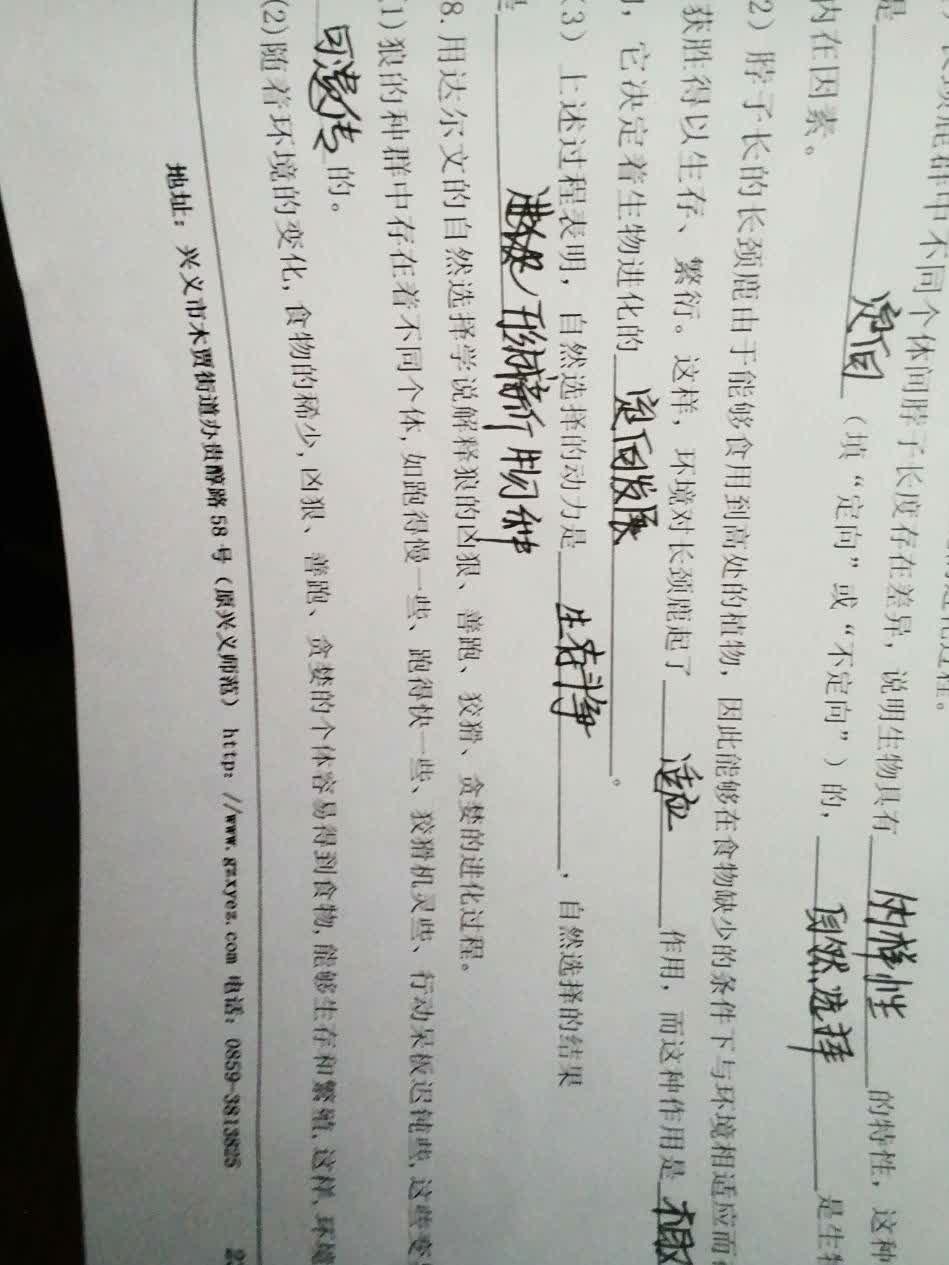 长颈鹿群中不同个体间脖子长度存在差异，说明生物具有 多样性 的特性，这种
是 定向 （填“定向”或“不定向”）的， 自然选择 是生物
内在因素。
2）脖子长的长颈鹿由于能够食用到高处的植物，因此能够在食物缺少的条件下与环境相适应而
获胜得以生存、繁衍。这样，环境对长颈鹿起了 适应 作用，而这种作用是
，它决定着生物进化的 定向发展 。
（3）上述过程表明，自然选择的动力是 生存斗争 ，自然选择的结果
是 形成新物种
8.用达尔文的自然选择学说解释狼的凶狠、善跑、狡猾、贪婪的进化过程。
1)狼的种群中存在着不同个体,如跑得慢一些、跑得快一些、狡猾机灵些、行动呆板迟钝些,这些变
可遗传 的。
(2)随着环境的变化,食物的稀少,凶狠、善跑、贪婪的个体容易得到食物,能够生存和繁殖,这样,环境
地址：兴义市木贾街道办贵醇路58号（原兴义师范） http：//www.gzxyez.com 电话：0859-3813825